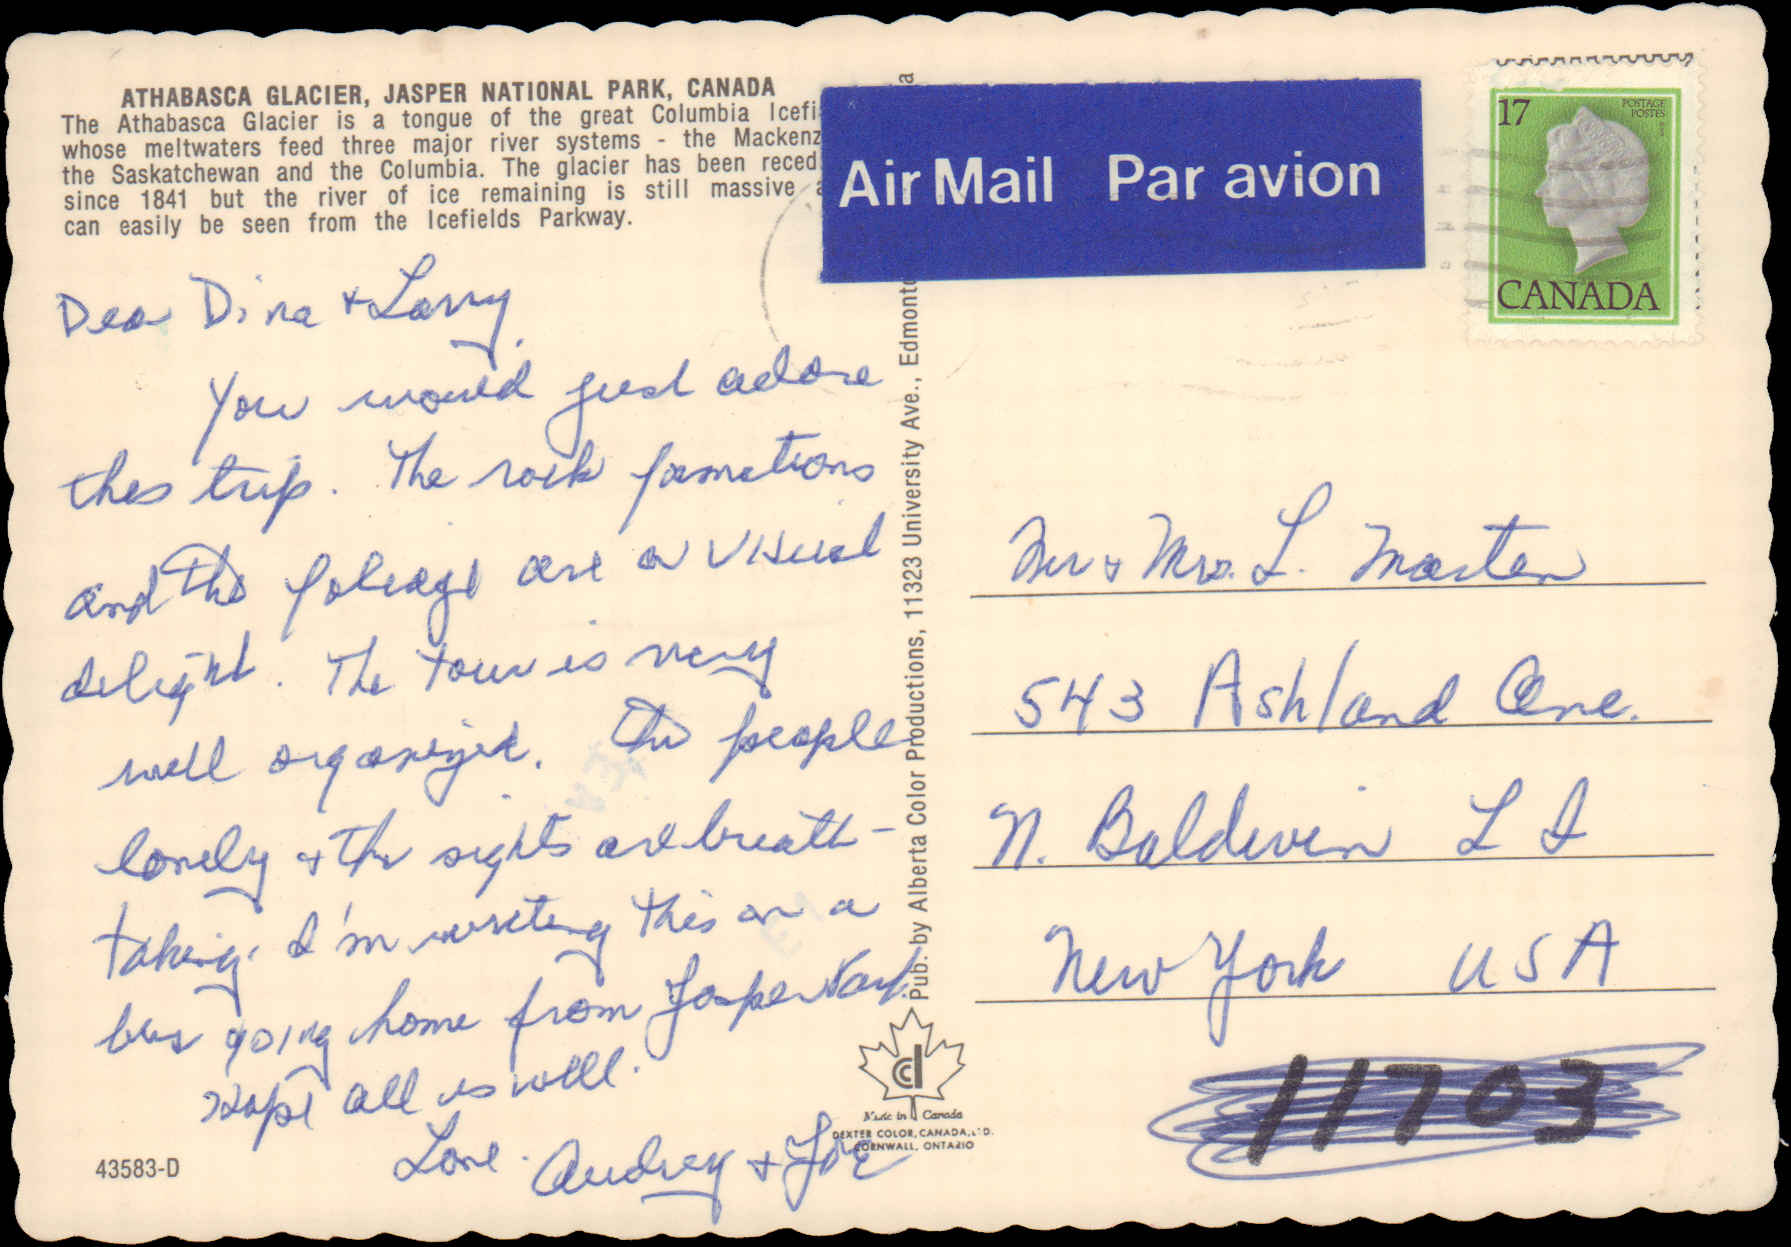 ATHABASCA GLACIER, JASPER NATIONAL PARK, CANADA
The Athabasca Glacier is a tongue of the great Columbia Icefi
whose meltwaters feed three major river systems - the Mackenz
the Saskatchewan and the Columbia. The glacier has been reced
since 1841 but the river of ice remaining is still massive a
can easily be seen from the Icefields Parkway.
Dear Dina & Larry,
You would just adore
this trip. The rock formations
and the foliage are a visual
delight. The tour is very
well organized. The people
lovely & the sights are breath-
taking. I'm writing this on a
bus going home from Jasper Park.
Hope all is well.
Love. Audrey & Joe
43583-D
Pub. by Alberta Color Productions, 11323 University Ave., Edmonto
a
Made in Canada
DEXTER COLOR, CANADA, LTD.
CORNWALL, ONTARIO
Air Mail Par avion
17
POSTAGE
POSTES
CANADA
Mr & Mrs. L. Marten
543 Ashland Ave.
N. Baldwin L I
New York USA
11703